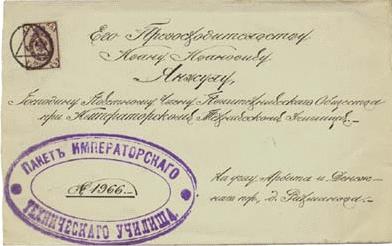 Его Превосходительству
Ивану Ивановичу
Янжулу,
Господину Почетному Члену Политехнического Общества
при Императорском Техническом Училище.
ПАКЕТЪ ИМПЕРАТОРСКАГО
ТЕХНИЧЕСКАГО УЧИЛИЩА
№ 1966.
На углу Арбата и Денеж-
наго пр., д. Рахманова.